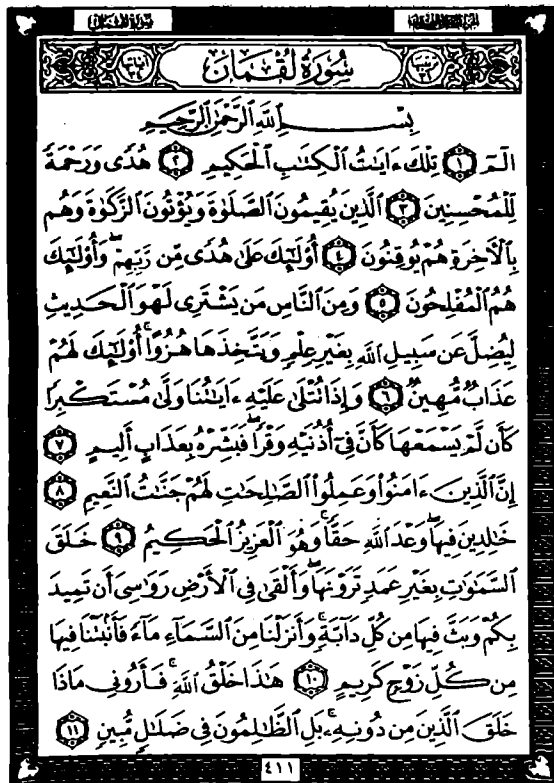 سُورَةُ لُقْمَان
بِسْمِ ٱللَّهِ ٱلرَّحْمَٰنِ ٱلرَّحِيمِ
الٓمٓ ١ تِلْكَ ءَايَٰتُ ٱلْكِتَٰبِ ٱلْحَكِيمِ ٢ هُدًى وَرَحْمَةً
لِّلْمُحْسِنِينَ ٣ ٱلَّذِينَ يُقِيمُونَ ٱلصَّلَوٰةَ وَيُؤْتُونَ ٱلزَّكَوٰةَ وَهُم
بِٱلْءَاخِرَةِ هُمْ يُوقِنُونَ ٤ أُو۟لَٰٓئِكَ عَلَىٰ هُدًى مِّن رَّبِّهِمْ ۖ وَأُو۟لَٰٓئِكَ
هُمُ ٱلْمُفْلِحُونَ ٥ وَمِنَ ٱلنَّاسِ مَن يَشْتَرِى لَهْوَ ٱلْحَدِيثِ
لِيُضِلَّ عَن سَبِيلِ ٱللَّهِ بِغَيْرِ عِلْمٍ وَيَتَّخِذَهَا هُزُوًا ۚ أُو۟لَٰٓئِكَ لَهُمْ
عَذَابٌ مُّهِينٌ ٦ وَإِذَا تُتْلَىٰ عَلَيْهِ ءَايَٰتُنَا وَلَّىٰ مُسْتَكْبِرًا
كَأَن لَّمْ يَسْمَعْهَا كَأَنَّ فِىٓ أُذُنَيْهِ وَقْرًا ۖ فَبَشِّرْهُ بِعَذَابٍ أَلِيمٍ ٧
إِنَّ ٱلَّذِينَ ءَامَنُوا۟ وَعَمِلُوا۟ ٱلصَّٰلِحَٰتِ لَهُمْ جَنَّٰتُ ٱلنَّعِيمِ ٨
خَٰلِدِينَ فِيهَا ۖ وَعْدَ ٱللَّهِ حَقًّا ۚ وَهُوَ ٱلْعَزِيزُ ٱلْحَكِيمُ ٩ خَلَقَ
ٱلسَّمَٰوَٰتِ بِغَيْرِ عَمَدٍ تَرَوْنَهَا ۖ وَأَلْقَىٰ فِى ٱلْأَرْضِ رَوَٰسِىَ أَن تَمِيدَ
بِكُمْ وَبَثَّ فِيهَا مِن كُلِّ دَآبَّةٍ ۚ وَأَنزَلْنَا مِنَ ٱلسَّمَآءِ مَآءً فَأَنۢبَتْنَا فِيهَا
مِن كُلِّ زَوْجٍ كَرِيمٍ ١٠ هَٰذَا خَلْقُ ٱللَّهِ فَأَرُونِى مَاذَا
خَلَقَ ٱلَّذِينَ مِن دُونِهِۦ ۚ بَلِ ٱلظَّٰلِمُونَ فِى ضَلَٰلٍ مُّبِينٍ ١١
٤١١